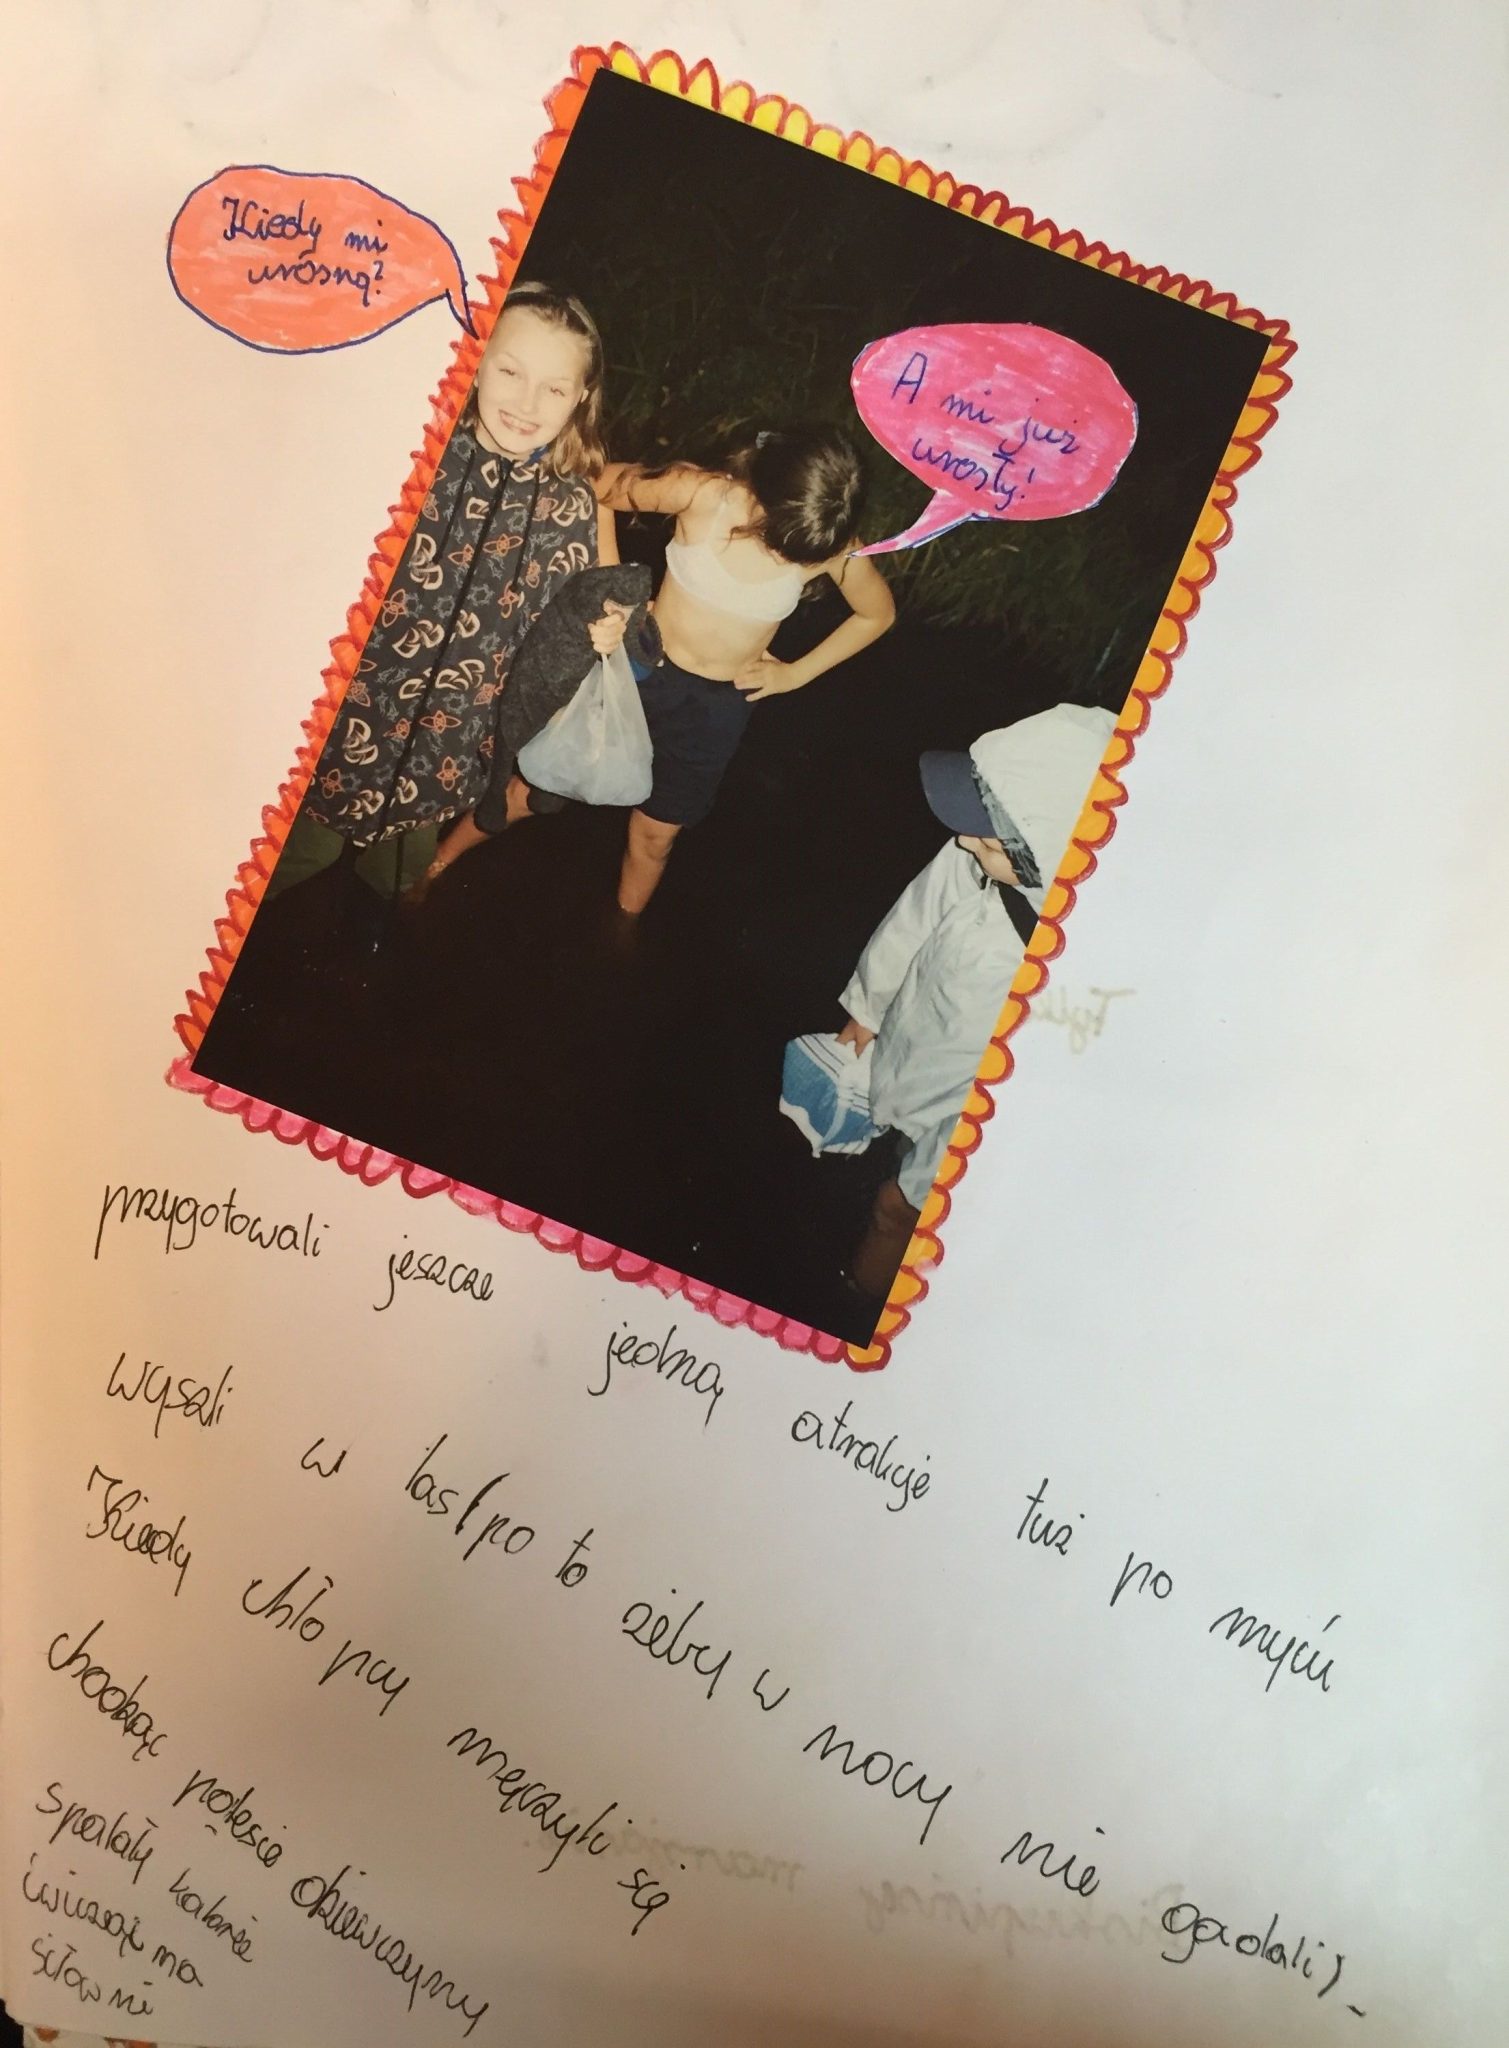 Kiedy mi
urosną?
A mi już
urosły!
przygotowali jeszcze jedną atrakcje tuż po myciu
wyszli w las (po to żeby w nocy nie gadali)
Kiedy chłopcy męczyli się
chodząc po lesie dziewczyny
spalały kalorie
ćwicząc na
siłowni